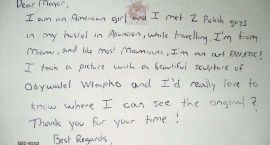 Dear Mayor,
I am an American girl and I met 2 Polish guys
in my hostel in Asuncion, while travelling. I'm from
Miami, and like most Miamians, I'm an art FANATIC!
I took a picture with a beautiful sculpture of
Obywatel Wlapko and I'd really love to
know where I can see the original?
Thank you for your time!
Best Regards,